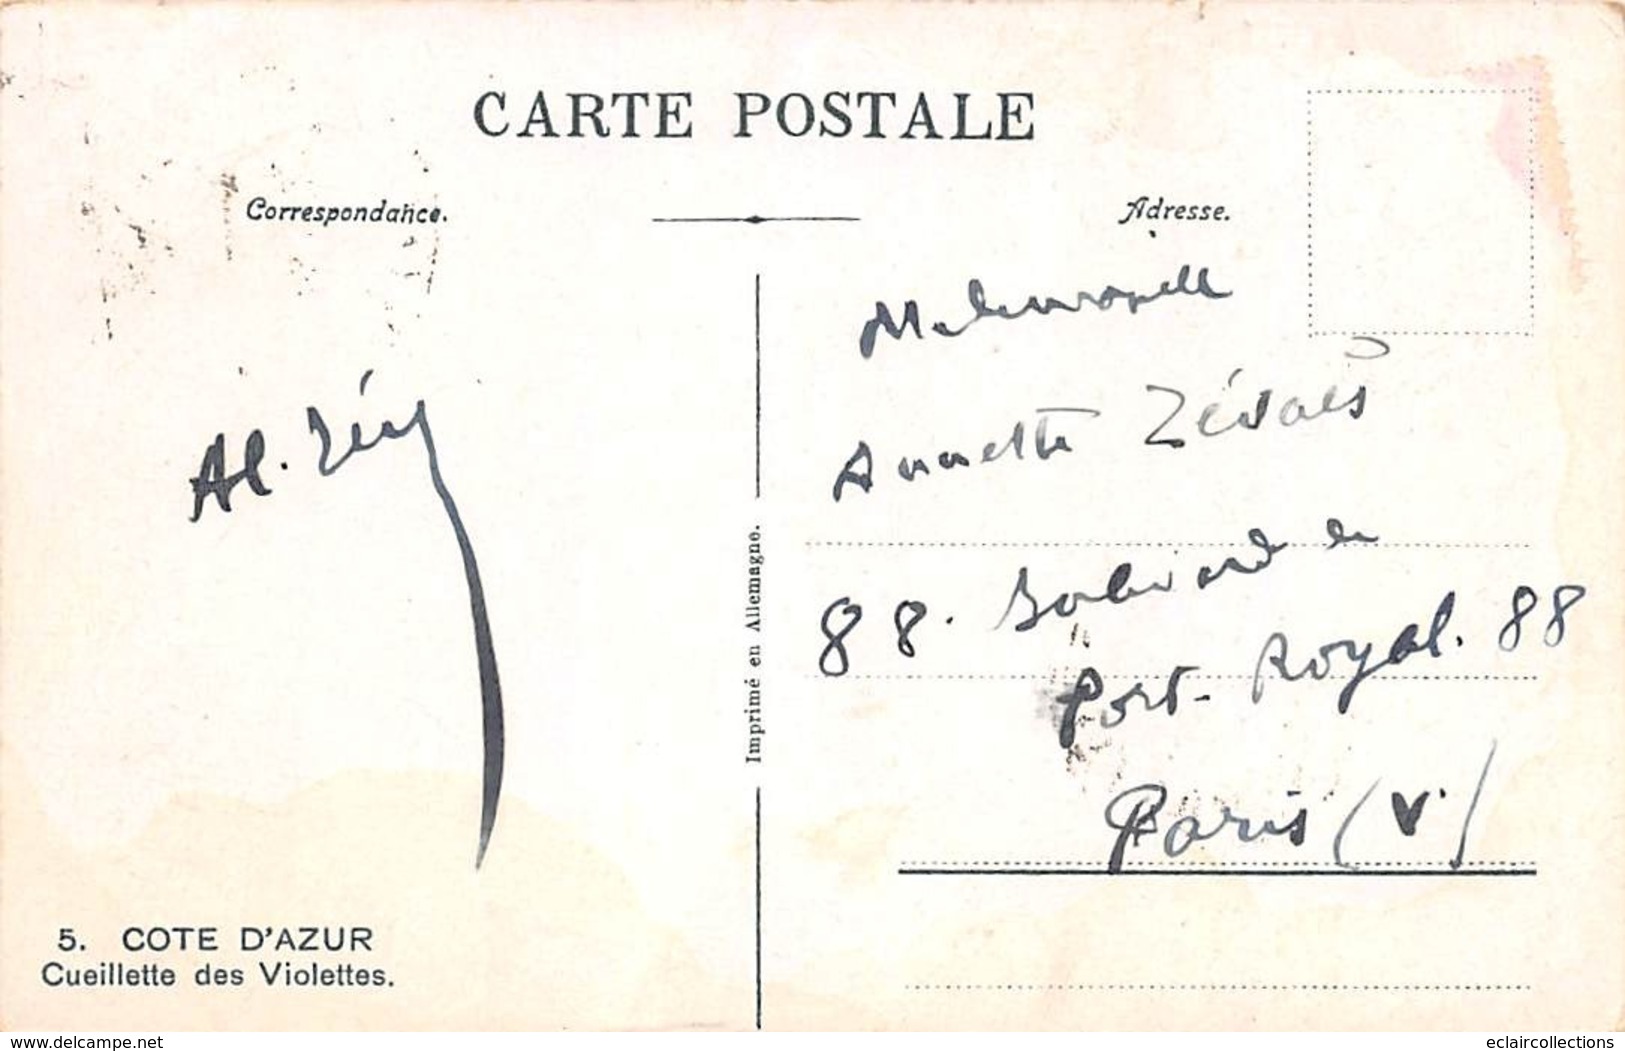 CARTE POSTALE
Correspondance.
Adresse.
Mademoiselle
Annette Zévaès
88. Boulevard de
Port-Royal. 88
Paris (V.)
Al.
Imprimé en Allemagne.
5. COTE D'AZUR
Cueillette des Violettes.
website: delcampe.net
eclaircollections